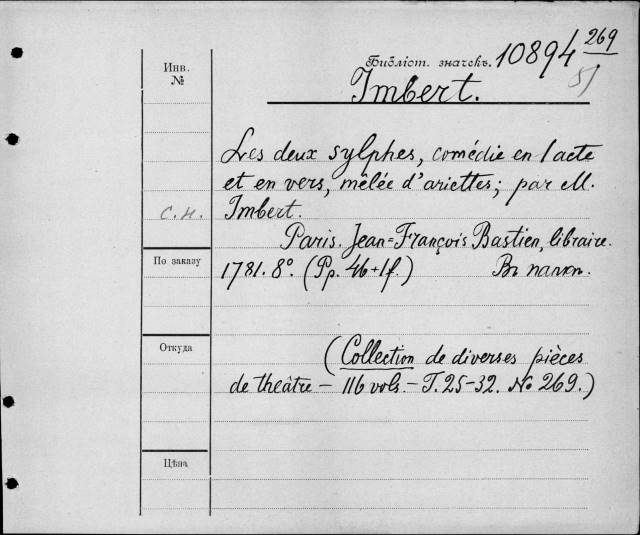 Инв.
№
Библіот. значекъ. 10894 269
51
Imbert.
Les deux sylphes, comédie en 1 acte
et en vers, mêlée d'ariettes; par M.
с.н. Imbert.
Paris. Jean=François Bastien, libraire.
По заказу
1781. 8°. (Pp. 46+1f.) Въ папкѣ.
Откуда
(Collection de diverses pièces
de théâtre – 116 vols. – T. 25-32. № 269.)
Цѣна